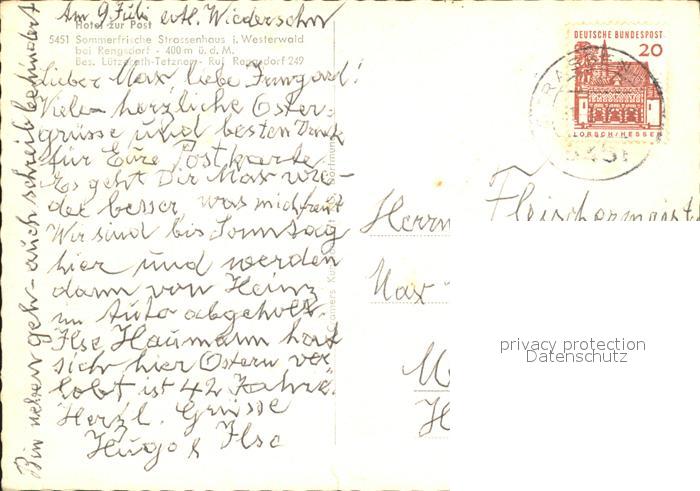 Am 9. Juli evtl. Wiedersehn
Hotel zur Post
5451 Sommerfrische Strassenhaus i. Westerwald
bei Rengsdorf - 400 m ü. d. M.
Bes. Lützerath-Tetzner - Ruf Rengsdorf 249
Lieber Max, liebe Irmgard!
Viele herzliche Oster-
grüsse und besten Dank
für Eure Postkarte.
Es geht Dir Max wie-
der besser, was mich freut
Wir sind bis Sonntag
hier und werden
dann von Heinz
im Auto abgeholt.
Ilse Haumann hat
sich hier Ostern ver-
lobt ist 42 Jahre.
Herzl. Grüsse
Hugo & Ilse
Bin neben geh- auch schreib behindert
Cramers
Dortmund
DEUTSCHE BUNDESPOST
20
LORSCH/HESSEN
5451
Fleischermeist
Herrn
Max
M
H
privacy protection
Datenschutz